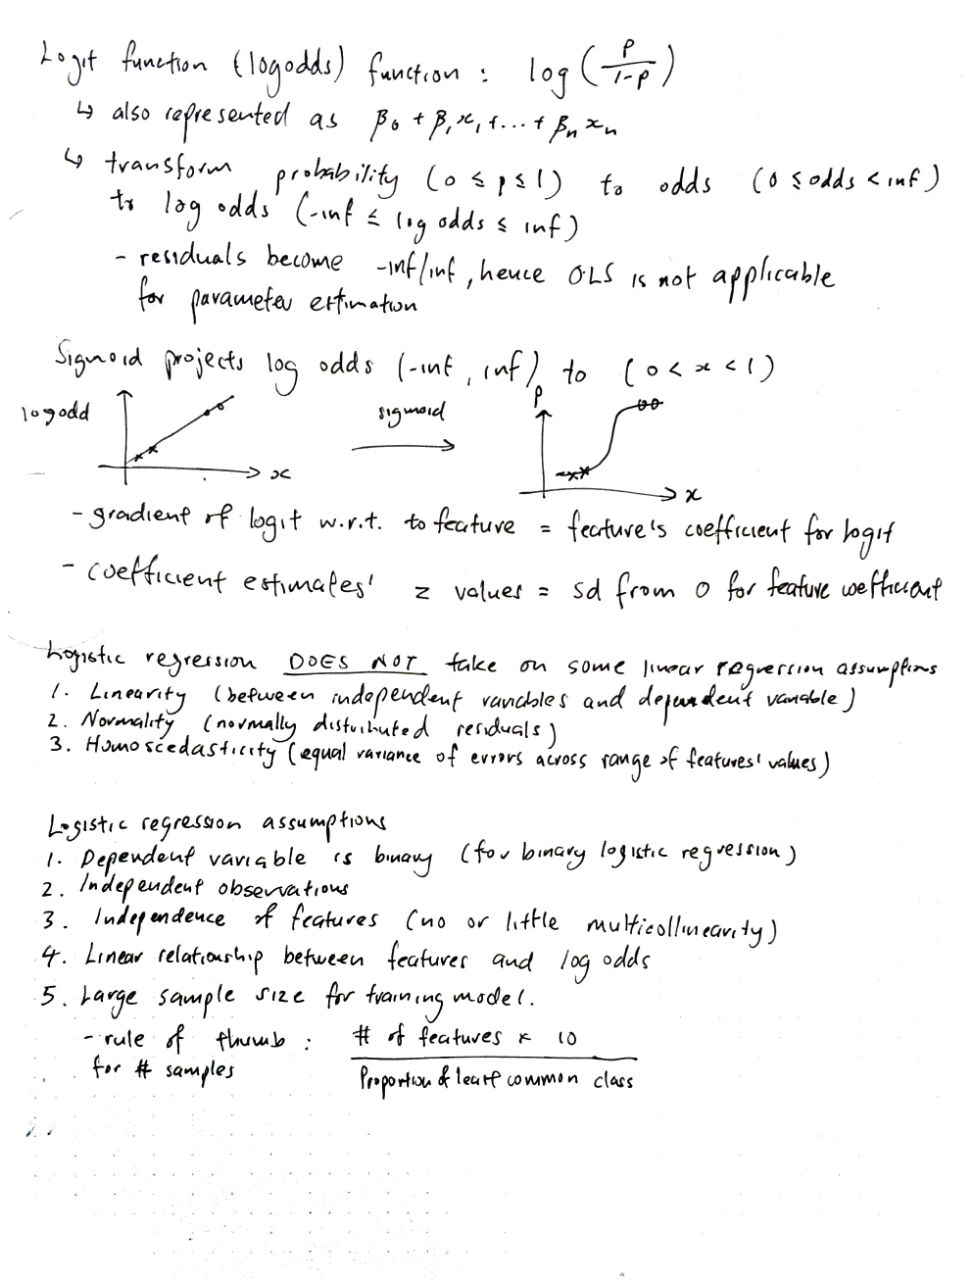 Logit function (logodds) function : log(p/1-p)
↳ also represented as β₀ + β₁x₁ + ... + βₙxₙ
↳ transform probability (0 ≤ p ≤ 1) to odds (0 ≤ odds < inf)
to log odds (-inf ≤ log odds ≤ inf)
- residuals become -inf/inf, hence OLS is not applicable
for parameter estimation
Sigmoid projects log odds (-inf, inf) to (0 < x < 1)
logodd
x
sigmoid
p
x
- gradient of logit w.r.t. to feature = feature's coefficient for logit
- coefficient estimates' z values = sd from 0 for feature coefficient
Logistic regression DOES NOT take on some linear regression assumptions
1. Linearity (between independent variables and dependent variable)
2. Normality (normally distributed residuals)
3. Homoscedasticity (equal variance of errors across range of features' values)
Logistic regression assumptions
1. Dependent variable is binary (for binary logistic regression)
2. Independent observations
3. Independence of features (no or little multicollinearity)
4. Linear relationship between features and log odds
5. Large sample size for training model.
- rule of thumb : # of features × 10
for # samples
Proportion of least common class